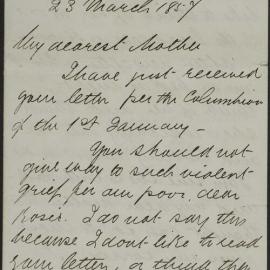 23 March 1857
My dearest Mother
I have just received
your letter per the Columbian
of the 1st January –
You should not
give way to such violent
grief, for our poor, dear
Rosie. I do not say this
because I dont like to read
your letter, or think them